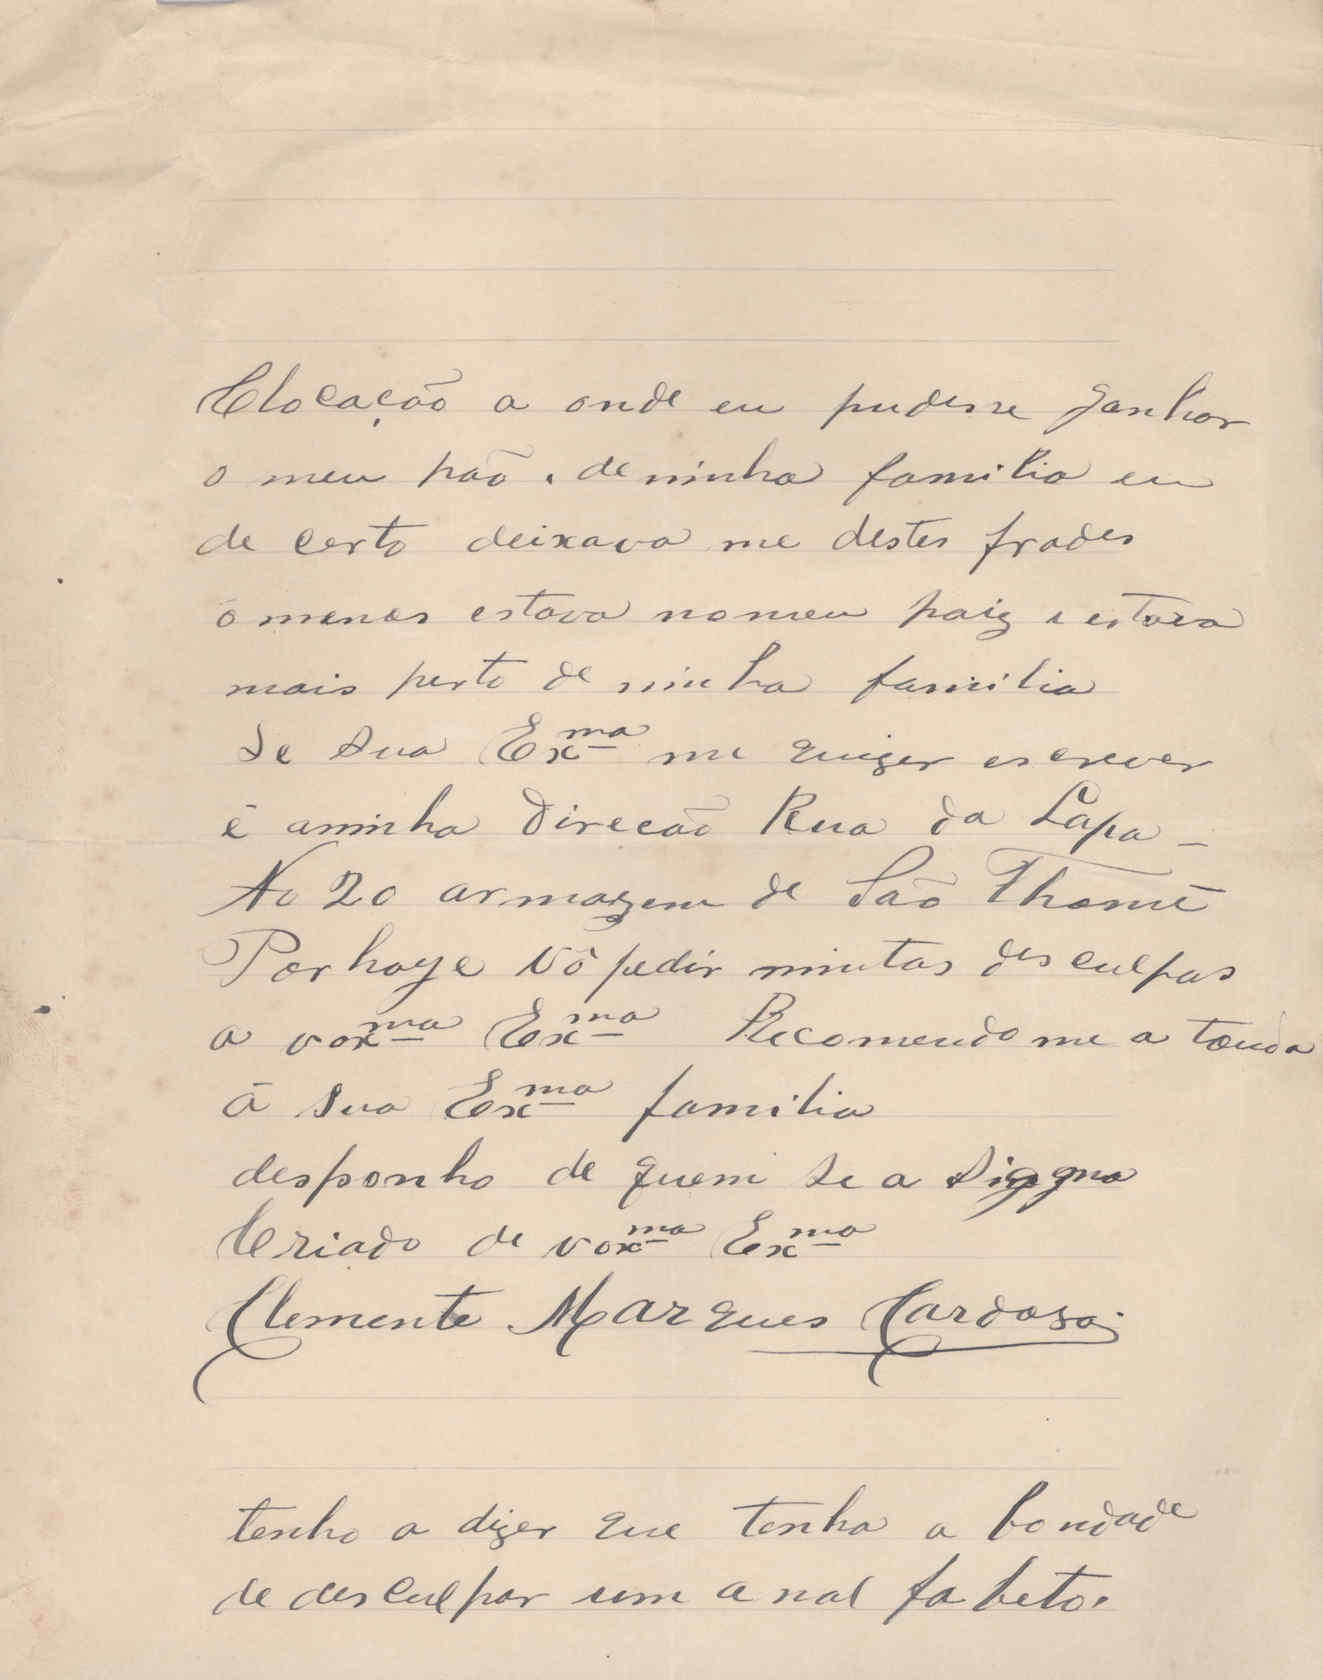 Clocação a onde eu pudesse ganhar
o meu pão . de ninha familia eu
de certo deixava me destes frades
ó menos estava nomeu paiz e estava
mais perto de ninha familia
Se sua Exma me quizer escrever
é aminha Direcão Rua da Lapa -
No 20 armazem de São Thomé
Por hoye vô pedir mintas desculpas
a voxma Exma Recomendo me a touda
á sua Exma familia
desponho de quem se a Signa
Criado de voxma Exma
Clemente Marques Cardoso
tenho a dizer que tenha a bondade
de desculpar um anal fabeto.